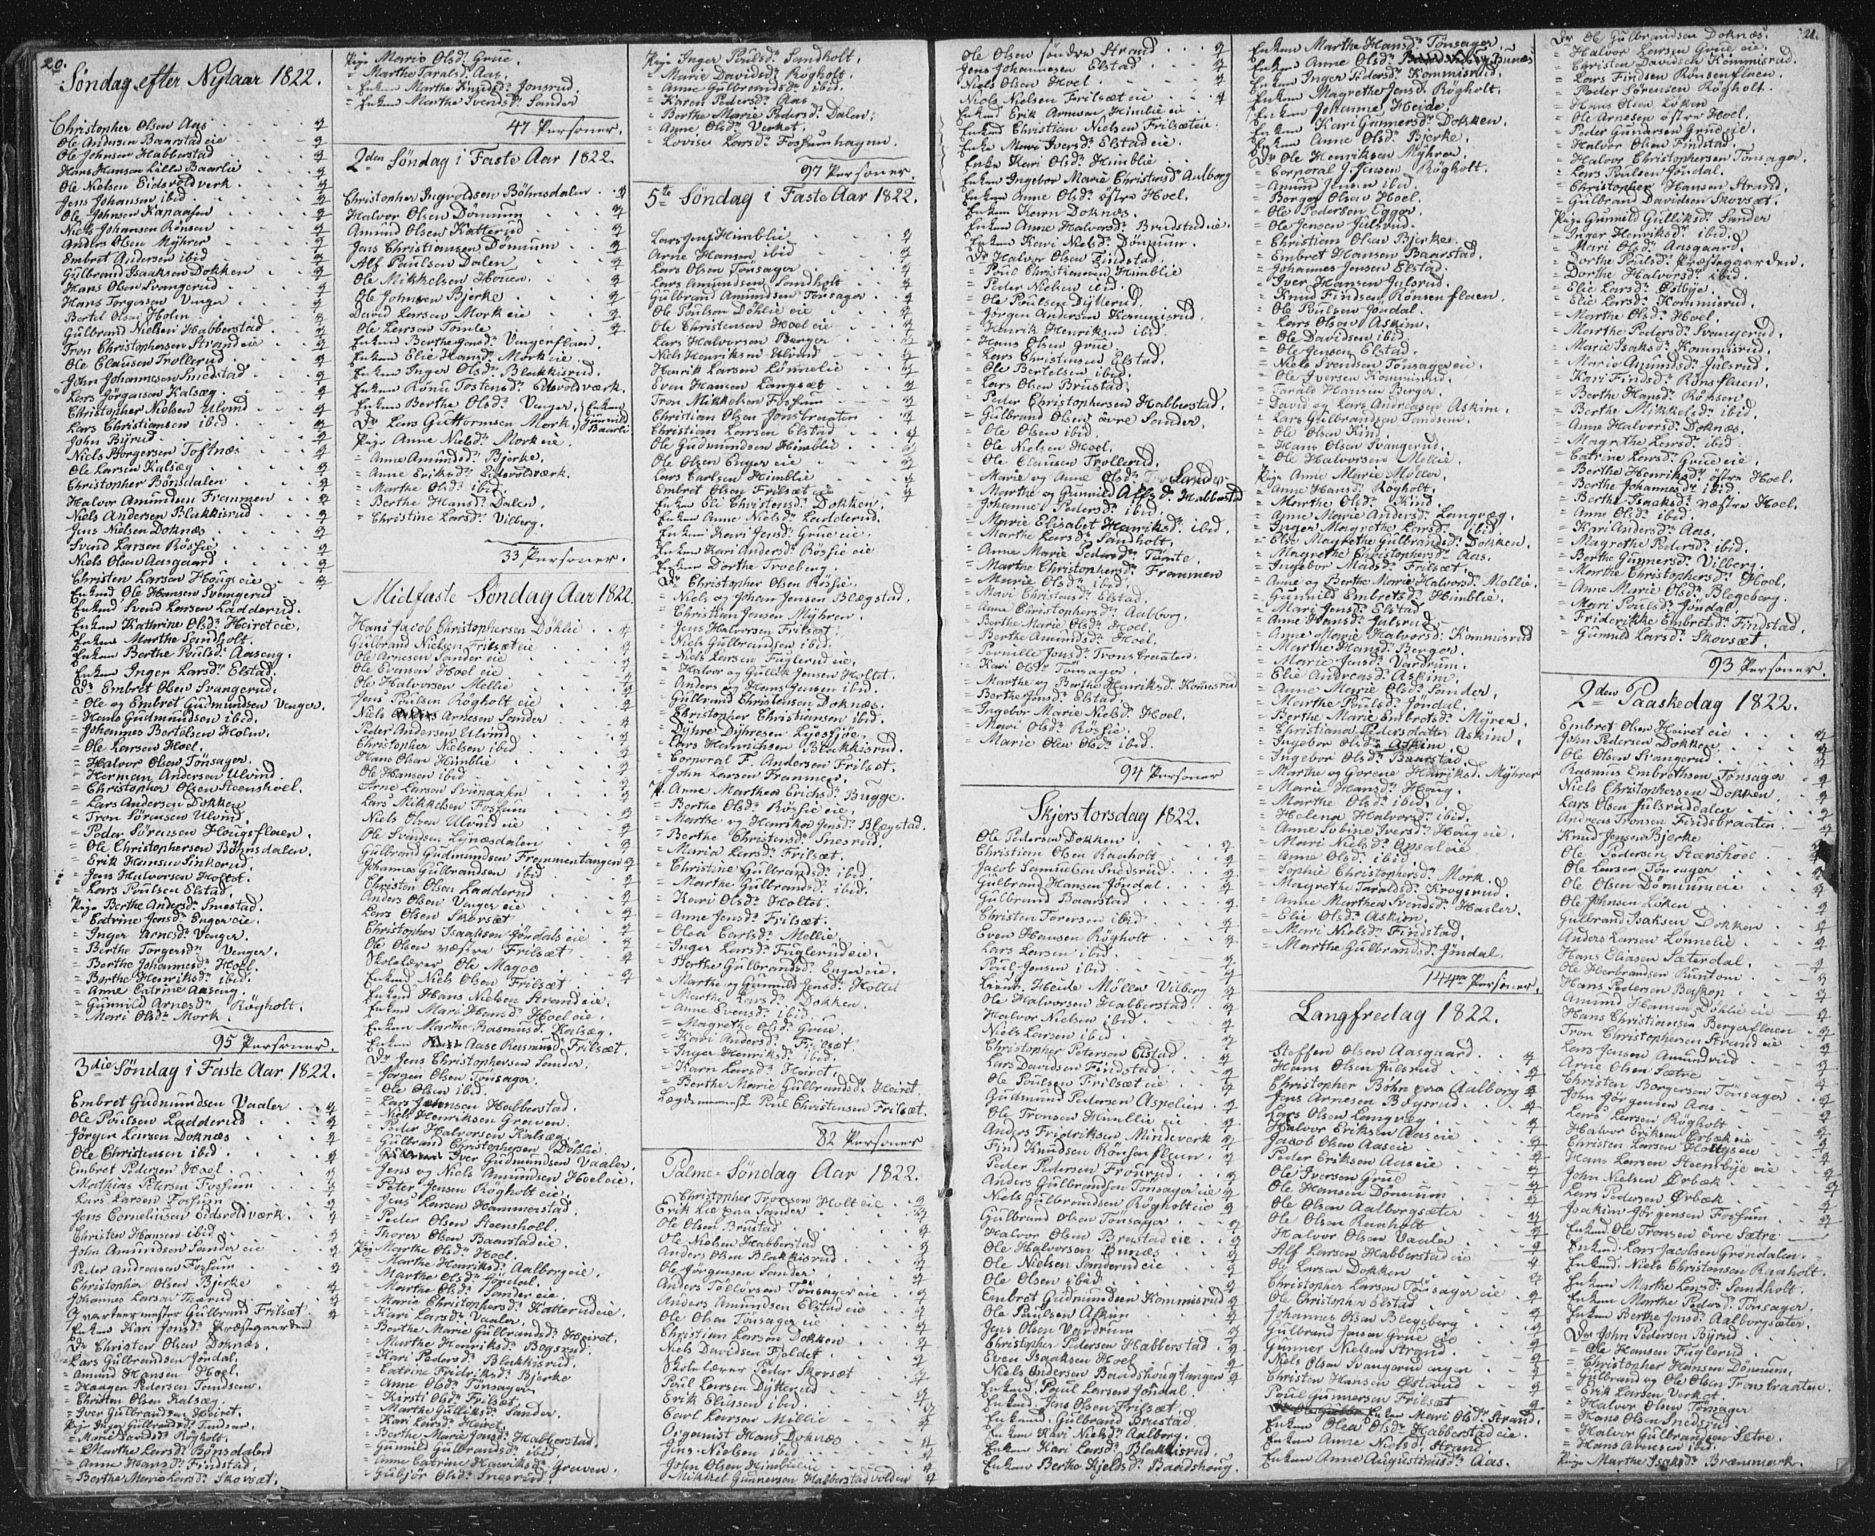 20.
Søndag efter Nytaar 1822.
Christopher Olsen Aas
Ole Andersen Baarstadeie
Ole Johnsen Habberstad
Hans Hansen Lille Baarlie
Ole Nielsen Eidsvoldverk
Jens Johansen ibid
Ole Johnsen Kanaafen
Niels Johansen Rönsen
Anders Olsen Myhrer
Embret Andersen ibid
Gulbrand Isaaksen Dokken
Hans Olsen Svangerud
Hans Torgersen Venger
Bertel Olsen Holm
Gulbrand Nielsen Habberstad
Tron Christophersen Strandeie
Ole Clausen Trollerud
John Johannesen Smedstad
Lars Jörgensen Kalsæg
Christopher Nielsen Ulvind
Lars Christiansen ibid
John Byrud
Niels Borgersen Toftnæs
Ole Larsen Kalsæg
Christopher Bönsdalen
Halvor Amundsen Frammen
Niels Andersen Blakkisrud
Jens Nielsen Doknæs
Svend Larsen Rössie
Niels Olsen Aasgaard
Christen Larsen Hougseie
Enkmd Ole Hansen Svangerud
Enkmd Svend Larsen Ladderud.
Enken Kathrine Olsdr. Heireteie.
Enken Marthe Sandholt.
Enken Berthe Poulsdr. Aaseng.
Enken Inger Larsdr. Elstad.
Dr. Embret Olsen Svangerud.
= Ole og Embret Gudmundsen Venger.
= Hans Gudmundsen ibid.
= Johannes Bertelsen Holm.
= Ole Larsen Hoel.
= Halvor Olsen Tönsager.
= Herman Andersen Ulvind.
= Christopher Olsen Steenshoel.
= Lars Andersen Dokken
= Tron Sörensen Ulvind.
= Peder Sörensen Hougsflaen.
= Ole Christophersen Böhnsdalen.
= Erik Hansen Sinkerud.
= Jens Halvorsen Holtet.
= Lars Poulsen Elstad.
Pige Berthe Andersdr. Smestad.
= Catrine Jensdr. Engereie.
= Inger Arnesdr. Venger.
= Berthe Torgersdr. Venger.
= Berthe Johannesdr. Hoel.
= Berthe Henriksdr. ibid.
= Anne Catrine Aaseng.
= Gunnild Arnesdr. Rögholt.
= Mari Olsdr. Mork.
95 Personer.
3die Søndag i Faste Aar 1822.
Embret Gudmundsen Vaaler
Ole Poulsen Ladderud
Jörgen Larsen Doknæs
Ole Christensen ibid
Embret Pedersen Hoel
Mathias Petersen Fossum
Lars Larsen Fossum
Jens Corneliusen Eidsvoldværk
Christen Hansen ibid
John Amundsen Sandereie
Peder Andreasen Fossum
Christopher Olsen Bjerke
Johannes Larsen Tærud
Qvartermester Gulbrand Frilsæt
Enken Kari Jonsdr. Præstegaarden
Dr. Christen Olsen Doknæs.
= Lars Gulbrandsen Jöndal.
= Amund Hansen Hoel.
= Haagen Pedersen Tomdsen.
= Christen Olsen Kalsæg.
= Iver Gulbrandsen Heiret.
Pige Inger Gulbrandsdr. Tandser.
= Marie Davidsdr. Rögholt.
= Marthe Larsdr. Bönsdalen
= Anne Hansdr. Findstad.
= Berthe Marie Larsdr. Skovsæt.
Pige Marie Olsdr. Grue.
= Marthe Taralsdr. Aas.
= Enken Marthe Knudsdr. Jonsrud.
= Enken Marthe Svendsdr. Sander
47 Personer.
2den Søndag i Faste Aar 1822.
Christopher Ingvoldsen Böhnsdalen
Halvor Olsen Dönnum
Amund Olsen Katterud
Jens Christiansen Dönnum
Alf Paulsen Dalen
Ole Mikkelsen Houen
Ole Johnsen Bjerke
David Larsen Morkeie
Ole Larsen Tömte
Enken Berthe Jonsdr. Vengerflaen.
Enken Elie Hansdr. Morkeie.
Enken Inger Olsdr. Blakkisrud.
Enken Rönnu Tostensdr. Eidsvoldværk.
Enken Berthe Olsdr. Venger, Enken Gunnild Baarli
Dr. Lars Guttormsen Mork.
Pige Anne Nielsdr. Morkeie.
= Anne Amundsdr. Bjerke.
= Anne Eriksdr. Eidsvoldværk.
= Marthe Olsdr. ibid.
= Berthe Hansdr. Dalen.
= Christine Larsdr. Vilberg.
33 Personer.
Midfaste Søndag Aar 1822.
Hans Jacob Christophersen Döhlie
Gulbrand Nielsen Frilsæteie
Ole Arnesen Sandereie
Ole Evensen Hoeleie
Ole Halvorsen Mellie
Jens Poulsen Rögholteie
Niels Arnesen Sander
Peder Andersen Ulvind
Christopher Nielsen ibid
Hans Olsen Himblie
Ole Hansen ibid
Arne Larsen Svinaasen
Lars Mikkelsen Fossum
Niels Olsen Ulvindeie
Ole Svendsen Lynæsdalen
Gulbrand Gudmundsen Frammentangen
Johannes Gulbrandsen ibid
Christen Olsen Ladderud
Anders Olsen Vengereie
Lars Olsen Skovsæt
Christopher Isaaksen Jöndalseie
Ole Olsen væstre Frilsæt
Skolelærer Ole Magoe
Enkmd Niels Olsen Frilsæt
Enkmd Hans Nielsen Strandeie.
Enken Mari Hansdr. Hoeleie.
Enken Marthe Rasmusdr. Kalsæg.
Enken Aase Rasmusdr. Frilsæt.
Dr. Jens Christophersen Sander.
= Jörgen Olsen Tönsager.
= Ole Olsen ibid.
= Lars Jensen Habberstad.
= Niels Henriksen Greven.
= Peder Halvorsen Kalsæg.
= Gulbrand Christophersen Döhlie.
Iver Gudmundsen Vaaler.
= Jens og Niels Amundsen Hoeleie.
= Peter Jensen Rögholteie.
= Jens Larsen Hammerstad.
= Peder Olsen Steenshoel.
= Thorer Olsen Baarstadeie.
Pige Marthe Olsdr. Hoel.
= Marthe Henriksdr. Aalborgeie.
= Marthe Olsdr. Göndal.
= Marthe Olsdr. Sandereie.
= Marie Christophersdr. Katterudeie.
= Kari Larsdr. Vaaler.
= Berthe Marie Gulbrandsdr. Heiret.
= Marthe Henriksdr. Bogsrud.
= Kari Pedersdr. Blakkisrud.
= Catrine Fridriksdr. Bjerke
= Anne Olsdr. Tönsager
= Kirsti Olsdr. Frilsæt.
= Marthe Gulliksdr. Sander.
= Kari Larsdr. Heiret.
= Berthe Marie Jensdr. Habberstad.
= Gunnild Gulbrandsdr. ibid.
= Anne Catrine Henriksdr. Greven.
= Gubjör Olsdr. Snesrud.
Pige Inger Poulsdr. Sandholt.
= Marie Davidsdr. Rögholt.
= Anne Gulbrandsdr. ibid.
= Karen Pedersdr. Aas.
= Berthe Marie Pedersdr. Dalen.
= Anne Olsdr. Verket.
= Lovise Larsdr. Fossumhagen.
97 Personer.
5te Søndag i Faste Aar 1822.
Lars Jensen Himblie
Arne Hansen ibid
Lars Olsen Tönsager
Lars Amundsen Sandholt
Gulbrand Amundsen Tönsager
Ole Poulsen Döhlieeie
Ole Christensen Hoeleie
Lars Halvorsen Berger
Niels Henriksen Ulvind
Henrik Larsen Lönnelie
Even Hansen Langsæt
Tron Mikkelsen Fossum
Christian Olsen Jonsbraaten
Christian Larsen Elstad
Ole Gudmundsen Himblie
Ole Olsen Engereie
Lars Carlsen Himblie
Embret Olsen Frilsæteie
Enken Eli Christensdr. Dokken
Enken Anne Nielsdr. Ladderud.
Enken Kari Jensdr. Grueeie.
Enken Kari Andersdr. Rössieeie
Enken Dorthe Trælseng.
Dr. Christopher Olsen Rössie.
= Niels og Johan Jensen Blægstad.
= Christian Jensen Myhren.
= Jens Halvorsen Frilsæt.
= Niels Gulbrandsen ibid.
= Niels Larsen Fuglerudeie.
= Halvor og Gullik Jensen Holtet.
= Anders og Hans Jensen ibid.
= Gulbrand Christensen Doknæs.
= Christopher Christiansen ibid.
= Dyhre Dyhresen Lyesfjöe.
= Lars Henrichsen Blakkisrud.
= Corporal F. Andersen Frilset.
= John Larsen Frammen.
P. Anne Marthea Erichsdr. Bugge.
= Berthe Olsdr. Rössieeie.
= Marthe og Henrikke Jensdr. Blægstad.
= Berthe Christensdr. Snesrud.
= Maria Larsdr. Frilsæt.
= Christine Gulbrandsdr. ibid.
= Marthe Gulbrandsdr. ibid.
= Kari Olsdr. Holtet.
= Anne Jensdr. Frilsæt.
= Olea Carlsdr. Mellie.
= Inger Larsdr. Fuglerudeie.
= Berthe Gulbrandsdr. Engereie.
= Marthe og Gunnild Jensdr. Holtet
= Marthe Larsdr. Dokken.
= Anne Evensdr. ibid.
= Magrethe Olsdr. Grue.
= Kari Andersdr. Frilsæt.
= Inger Henriksdr. ibid.
= Karn Larsdr. Heiret.
= Berthe Marie Gulbrandsdr. Heiret.
Lægdsmand Poul Christensen Frilsæt.
82 Personer
Palme-Søndag Aar 1822.
Christopher Toresen Holteie
Erik Lie paa Sander
Ole Olsen Brustad
Ole Nielsen Habberstad
Anders Olsen Blakkisrud
Ole Jörgensen Sander
Anders Tollevsen Tönsagereie
Anders Amundsen Elstadeie
Ole Olsen Tönsagereie
Christian Larsen Dokken
Niels Davidsen Faldet
Skolelærer Peder Skovsæt
Poul Larsen Dytterud
Erik Ellssen ibid
Carl Larsen Mellie
Organist Hans Doknæs
Jens Nielsen ibid
John Olsen Himblieeie
Mikkel Gunnersen Habberstadvolden
Ole Olsen söndre Strand
Jens Johannesen Elstad
Niels Olsen Hoel
Niels Nielsen Frilsæteie
Enkmd Erik Arnesen Himblieeie
Enkmd Christian Nielsen Frilsæteie.
Enken Mari Iversdr. Elstadeie.
Enken Kari Olsdr. Himblie
Enken Ingebor Marie Christensdr. Aalborg
Enken Anne Olsdr. östre Hoel.
Enken Karn Doknæs.
Enken Anne Halvorsdr. Brudstadeie.
Enken Kari Nielsdr. Dönnum.
Dr. Halvor Olsen Findstad.
= Poul Christiansen Himblie
= Peder Nielsen ibid.
= Ole Poulsen Dytterud.
= Jörgen Andersen Kommisrud.
= Henrik Henriksen ibid.
= Hans Olsen Grue.
= Lars Christensen Elstad.
= Ole Bertelsen ibid.
= Lars Olsen Brustad.
= Peder Christophersen Habberstad.
= Gulbrand Olsen övre Sander.
= Ole Olsen ibid.
= Ole Nielsen Hoel.
= Ole Clausen Trollerud.
= Marie og Anne Olsdr. Sander
= Marthe og Gunnild Alfsdr. Habberstad
= Johanne Pedersdr. ibid.
= Marie Elisabet Henriksdr. ibid.
= Marthe Larsdr. Sandholt.
= Anne Marie Pedersdr. Tömte.
= Marthe Christophersdr. Frammen
= Marie Olsdr. ibid.
= Mari Christensdr. Elstad.
= Anne Christophersdr. Aalborg.
= Berthe Marie Olsdr. Hoel.
= Berthe Amundsdr. Hoel.
= Pernille Jonsdr. Tronsbrustad.
= Kari Olsdr. Tönsager.
= Marthe og Berthe Henriksdr. Kommisrud
= Berthe Jensdr. Elstad.
= Ingebor Marie Nielsdr. Hoel.
= Mari Olsdr. Rössie.
= Marie Olea Olsdr. ibid.
94 Personer
Skjerstorsdag 1822.
Ole Pedersen Dokken
Christian Olsen Raaholt
Jacob Samuelsen Snedsrud
Gulbrand Hansen Jöndal
Gulbrand Baarstad
Christen Toresen ibid
Even Hansen Rögholt
Lars Larsen ibid
Poul Jensen ibid
Lieut: Heide Möller Vilberg
Ole Halvorsen Habberstad
Halvor Nielsen ibid
Niels Larsen ibid
Christopher Petersen Elstad
Lars Davidsen Findstad
Ole Poulsen Frilsæteie
Gudmund Pedersen Aspelien
Ole Tronsen Himblieeie
Anders Fridriksen Mindeverk
Find Knudsen Rönsenflaen
Peder Pedersen Frönrud
Anders Gulbrandsen Tönsagereie
Niels Gulbrandsen Rögholteie
Gulbrand Olsen Tönsager
Halvor Olsen Brustadeie
Ole Halvorsen Bunæs
Ole Nielsen Sanderudeie
Ole Olsen ibid
Embret Gudmundsen Kommisrud
Ole Poulsen Askim
Jens Olsen Vardrum
Christopher Pedersen Habberstad
Even Isaaksen Hoel
Niels Andersen Baadshougtangen
Enkmd. Poul Larsen Jöndal.
Enkmd. Jens Olsen Frilsæt.
Enkmd. Gulbrand Brustad.
Enken Kari Nielsdr. Aalborg.
Enken Kari Larsdr. Blakkisrud.
Enken Berthe Kjelsdr. Baadshoug.
Enken Marthe Hansdr. Tönsager
Enken Anne Olsdr. Bunæs
Enken Inger Pedersdr. Kommisrud.
Enken Magrethe Jensdr. Rögholt.
Enken Johanne Heide.
Enken Kari Gunnersdr. Dokken.
Enken Anne Olsdr. Bjerke.
Dr. Ole Henriksen Myhrer.
= Corporal J. Jensen Rögholt.
= Amund Jensen ibid.
= Borger Olsen Hoel.
= Ole Pedersen Egger.
= Ole Jensen Julsrud.
= Christian Olsen Bjerke.
= Embret Hansen Baarstad.
= Johannes Jensen Elstad.
= Iver Hansen Julsrud.
= Knud Findsen Rönsenflaen.
= Ole Poulsen Jöndal.
= Lars Olsen Askim.
= Ole Davidsen ibid.
= Ole Jensen Elstad.
= Niels Svendsen Tönsagereie.
= Ole Iversen Kommisrud
= Tarald Hansen Berger.
= David og Lars Andreasen Askim.
= Lars Gulbrandsen Tandsen.
= Ole Olsen Kind.
= Hans Olsen Svangerud.
= Ole Halvorsen Mellie.
Pige Anne Marie Möller.
= Anne Hansdr. Rögholt.
= Marthe Olsdr. Kind.
= Anne Marie Andersdr. Langvæg.
= Inger Magrethe Larsdr. ibid.
= Else Magrethe Gulbrandsdr. Dokken.
= Magrethe Christophersdr. Aas.
= Ingebor Madsdr. Frilsæt.
= Anne og Berthe Marie Halvorsdr. Mellie.
= Gunnild Embretsdr. Himblie.
= Mari Jensdr. Elstad.
= Anne Hansdr. Julsrud.
= Anne Marie Halvorsdr. Kommisrud
= Marthe Hansdr. Berger.
= Marie Jensdr. Vardrum.
= Elie Andreasdr. Askim.
= Anne Marie Olsdr. Sander.
= Marthe Poulsdr. Jöndal.
= Berthe Marie Embretsdr. Myrer.
= Christiana Pedersdatter Askim.
= Ingebor Olsdr. Askim.
= Ingebor Olsdr. Baarstad.
= Marthe og Gorene Henriksdr. Myhrer
= Marie Hansdr. Houg.
= Marthe Olsdr. ibid.
= Helena Halvorsdr. ibid.
= Anne Sobine Iversdr. Hougeie.
= Mari Nielsdr. Opsaleie
= Anne Olsdr. ibid.
= Sophie Christophersdr. Mork.
= Magrethe Taraldsdr. Krogsrud.
= Anne Marthea Svendsdr. Hasler.
= Elie Olsdr. Askim.
= Mari Nielsdr. Findstad.
= Marthe Gulbrandsdr. Jöndal.
144 Personer.
Langfredag 1822.
Steffen Olsen Aasgaard
Hans Olsen Julsrud
Christopher Bohn paa Aalborg
Jens Arnesen Bögsrud
Lars Olsen Langvæg
Halvor Eriksen Aaseie
Jacob Olsen Aaseie
Peder Eriksen Aaseie
Ole Iversen Grue
Ole Hansen Dönnum
Ole Olsen Aalborgsæter
Ole Olsen Raaholt
Halvor Olsen Vaaler
Alf Larsen Habberstadeie
Ole Larsen Dokken
Christopher Larsen Tönsagereie
Ole Christopher Elstad
Johannes Olsen Blegsberg
Gulbrand Jensen Grueeie
Gunner Nielsen Strand
Niels Olsen Svangerudengen
Christen Hansen Østand
Poul Gunnersen Frilsæt
Enken Mari Olsdr. Strand.
Enken Olea Olsdr. Habberstadeie.
Enken Anne Nielsdr. Strand.
Enken Anne Augustinusdr. Aas.
21.
Dr. Ole Gulbrandsen Doknæs.
= Halvor Larsen Grueeie.
= Christen Davidsen Kommisrud.
= Lars Findsen Rönsenflaen.
= Peder Sörensen Rögholt.
= Hans Olsen Löken
= Ole Arnesen östre Hoel.
= Peder Gundersen Grindeie.
= Halvor Olsen Findstad.
= Halvor Christophersen Tönsager.
= Lars Poulsen Jöndal.
= Christopher Hansen Strand.
= Gulbrand Davidsen Skovsæt.
Pige Gunnild Gulliksdr. Sander
= Inger Henriksdr. ibid.
= Mari Olsdr. Aasgaard.
= Dorthe Poulsdr. Præstegaarden.
= Dorthe Halvorsdr. ibid.
= Elie Larsdr. Østbye.
= Elie Larsdr. Kommisrud.
= Marthe Olsdr. Hoel.
= Marthe Pedersdr. Svangerud.
= Marie Isaksdr. Kommisrud.
= Marie Amundsdr. Julsrud.
= Kari Findsdr. Rönsflaen.
= Berthe Hansdr. Röhsen.
= Berthe Mikkelsdr. ibid.
= Anne Halvorsdr. Doknæs.
= Magrethe Larsdr. ibid.
= Catrine Larsdr. Grueeie.
= Berthe Henriksdr. östre Hoel.
= Berthe Johannesdr. ibid.
= Berthe Isaaksdr. væstre Hoel.
= Anne Olsdr. ibid.
= Kari Andersdr. Aas.
= Magrethe Pedersdr. ibid.
= Berthe Gunnersdr. Vilberg.
= Marthe Christophersdr. Hoel.
= Anne Marie Olsdr. Blegeberg.
= Mari Poulsdr. Jöndal.
= Friderikke Embretsdr. Findstad.
= Gunnild Larsdr. Skovsæt.
93 Personer.
2den Paaskedag 1822.
Embret Olsen Heireteie
John Pedersen Dokken
Ole Olsen Svangerud
Rasmus Embrethsen Tönsager
Niels Christophersen Dokken
Lars Olsen Julsruddalen
Andreas Tronsen Findsbraaten
Knud Jensen Bjerke
Ole Pedersen Stænshoel
Ole Larsen Tönsager
Ole Olsen Dönnumeie
Ole Johnsen Löken
Gulbrand Isaksen Dokken
Anders Larsen Lönnelie
Hans Eliasen Sæterdal
Ole Herbrandsen Runtom
Hans Pedersen Beskop
Amund Hansen Döhlieeie
Hans Christiansen Bergerflaen
Tron Christophersen Strandeie
Lars Jensen Amundrud
Arne Olsen Sætre
Christen Borgersen Tönsager
John Jörgensen Aas
Lars Larsen Rögholt
Halvor Eriksen Ørbækeie
Christen Larsen Holtyseie
Hans Larsen Steenbyeie
John Nielsen Ørbæk
Lars Pedersen Ørbæk
Joakim Jörgensen Fossum
Enkmd Ole Tronsen övre Sætre
Enkmd. Lars Jacobsen Gröndalen.
Enkmd. Niels Christensen Raaholt.
Enken Marthe Larsdr. Sandholt.
Enken Marthe Pedersdr. Tönsager.
Enken Berthe Jonsdr. Aalborgsæter.
Dr. John Pedersen Byrud.
= Ole Hansen Fuglerud.
= Christopher Hansen Dönnum.
= Gulbrand og Ole Olsen Tronsbraaten.
= Erik Larsen Verket.
= Halvor Olsen Tönsager
= Hans Olsen Snedsrud.
= Halvor Gulbrandsen Sætre.
= Hans Arnesen ibid.
Pige Marthe Isaksdr. Brænmork.